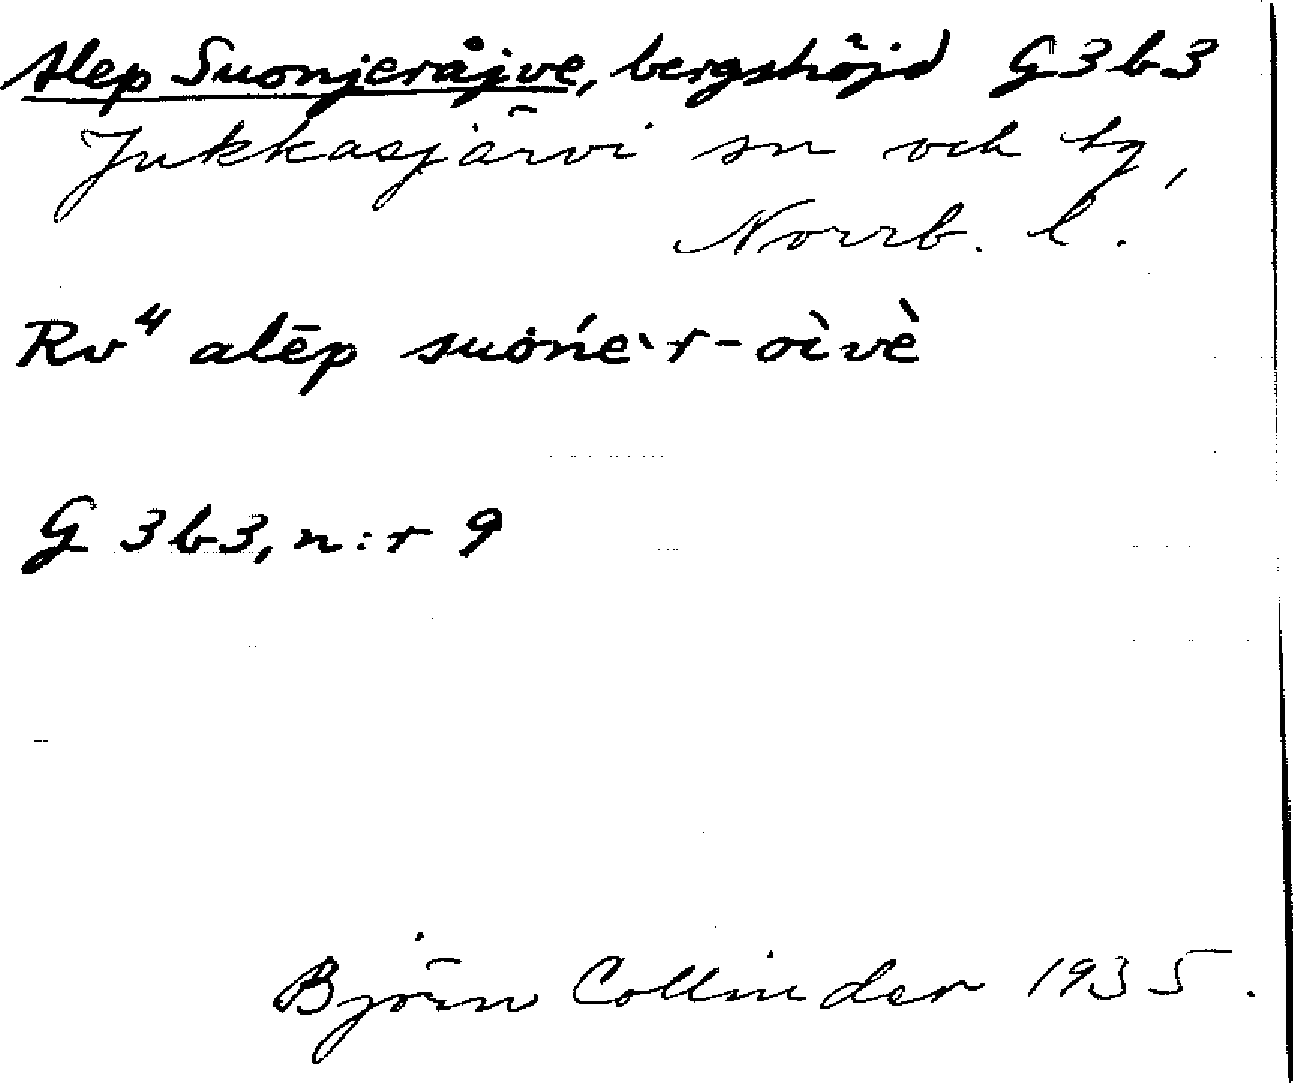 Alep Suonjeråjve, bergshöjd G 3 b 3
Jukkasjärvi sn och tg,
Norrb. l.
Rv⁴ alēp suońe`r-oìvè
G 3 b 3, n:r 9
Björn Collinder 1935.